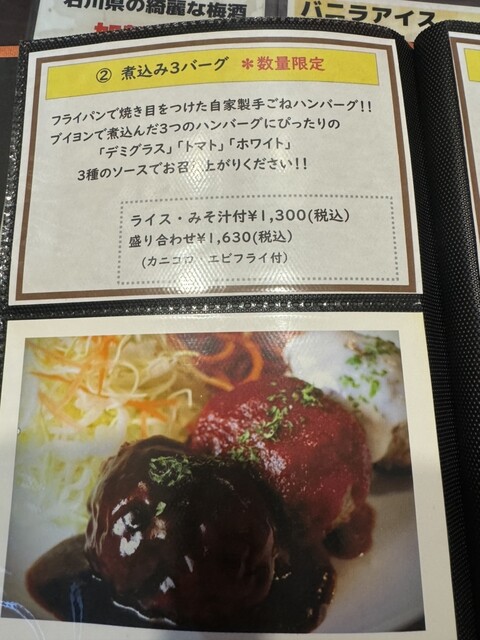 石川県の綺麗な梅酒
バニラアイス
② 煮込み3バーグ ＊数量限定
フライパンで焼き目をつけた自家製手ごねハンバーグ!!
ブイヨンで煮込んだ3つのハンバーグにぴったりの
「デミグラス」「トマト」「ホワイト」
3種のソースでお召 上がりください!!
ライス・みそ汁付¥1,300(税込)
盛り合わせ¥1,630(税込)
(カニコロ エビフライ付)